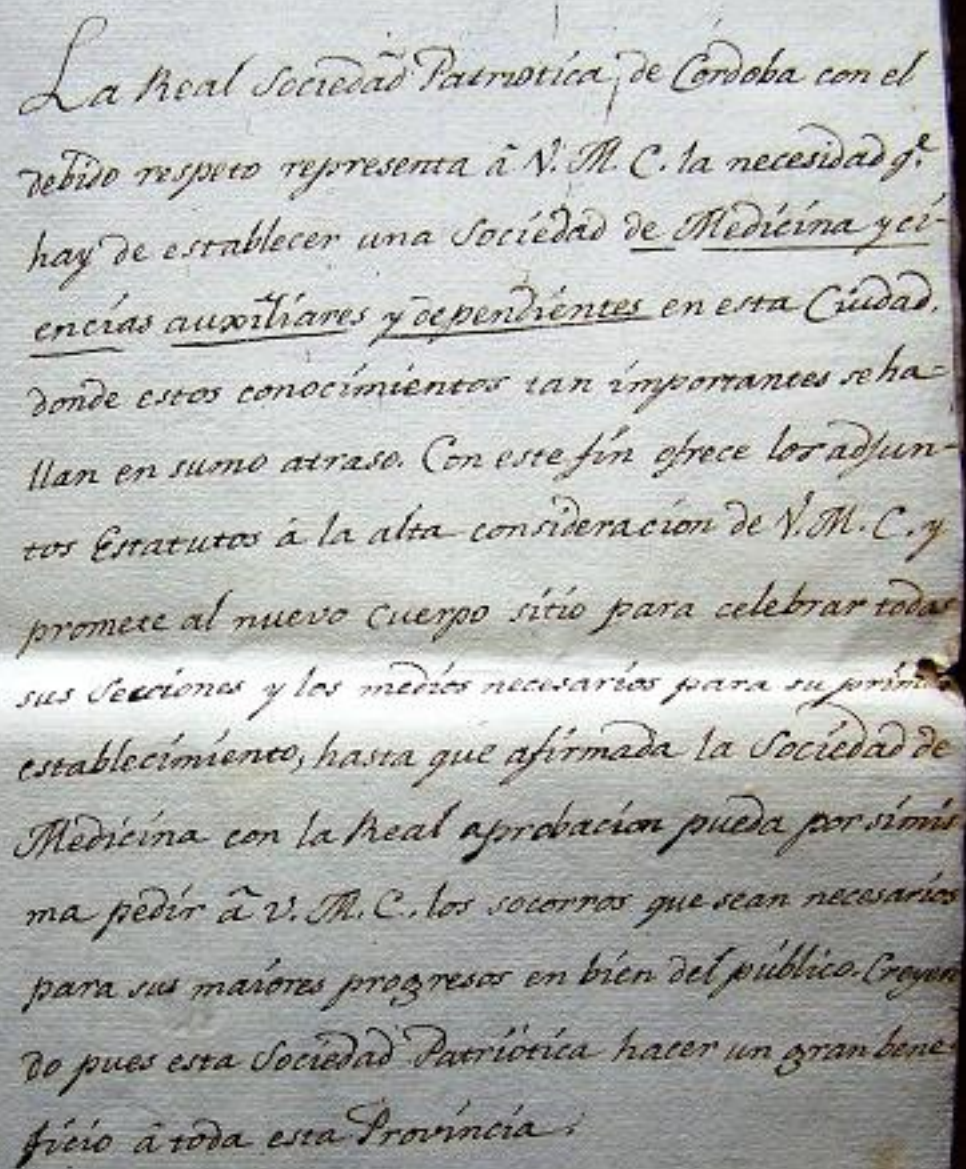 La Real Sociedad Patriotica, de Córdoba con el
debido respeto representa â V. M. C. la necesidad q.e
hay de establecer una Sociedad de Medicina y ci-
encias auxiliares y dependientes en esta Ciudad,
donde estos conocimientos tan importantes se ha-
llan en sumo atraso. Con este fin ofrece los adjun-
tos Estatutos à la alta consideracion de V. M. C. y
promete al nuevo Cuerpo sitio para celebrar todas
sus Secciones y los medios necesarios para su primer
establecimiento, hasta que afirmada la Sociedad de
Medicina con la Real aprobacion pueda por si mis
ma pedir â V. M. C. los socorros que sean necesarios
para sus maiores progresos en bien del público. Creyen
do pues esta Sociedad Patriótica hacer un gran bene-
ficio â toda esta Provincia.